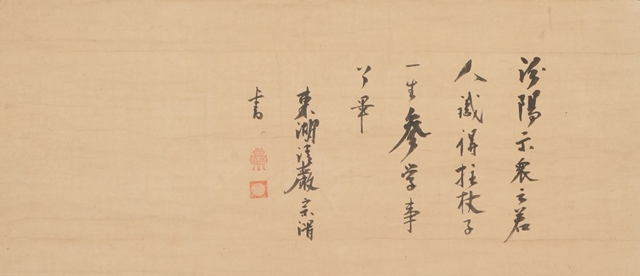 汾陽示衆云若
人識得拄杖子
一生參学事
了畢
東湖清巖宗渭
書